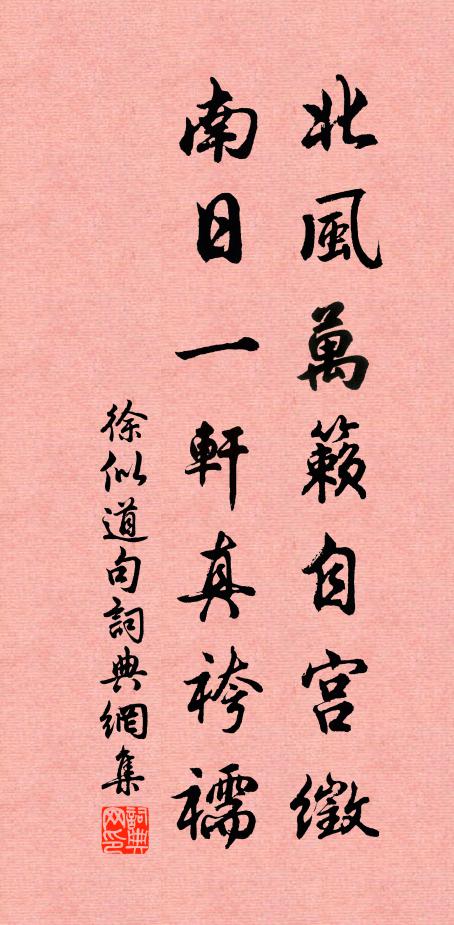 北風萬籟自宮徵
南日一軒真袴襦
徐似道句詞典網集
詞典网印